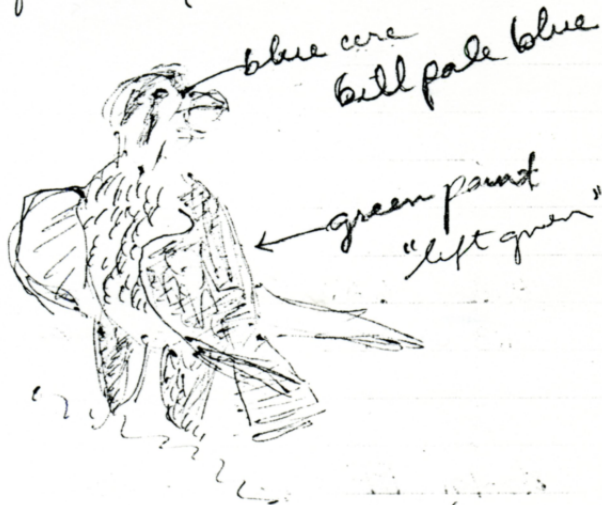 blue cere
bill pale blue
green paint
"left green"